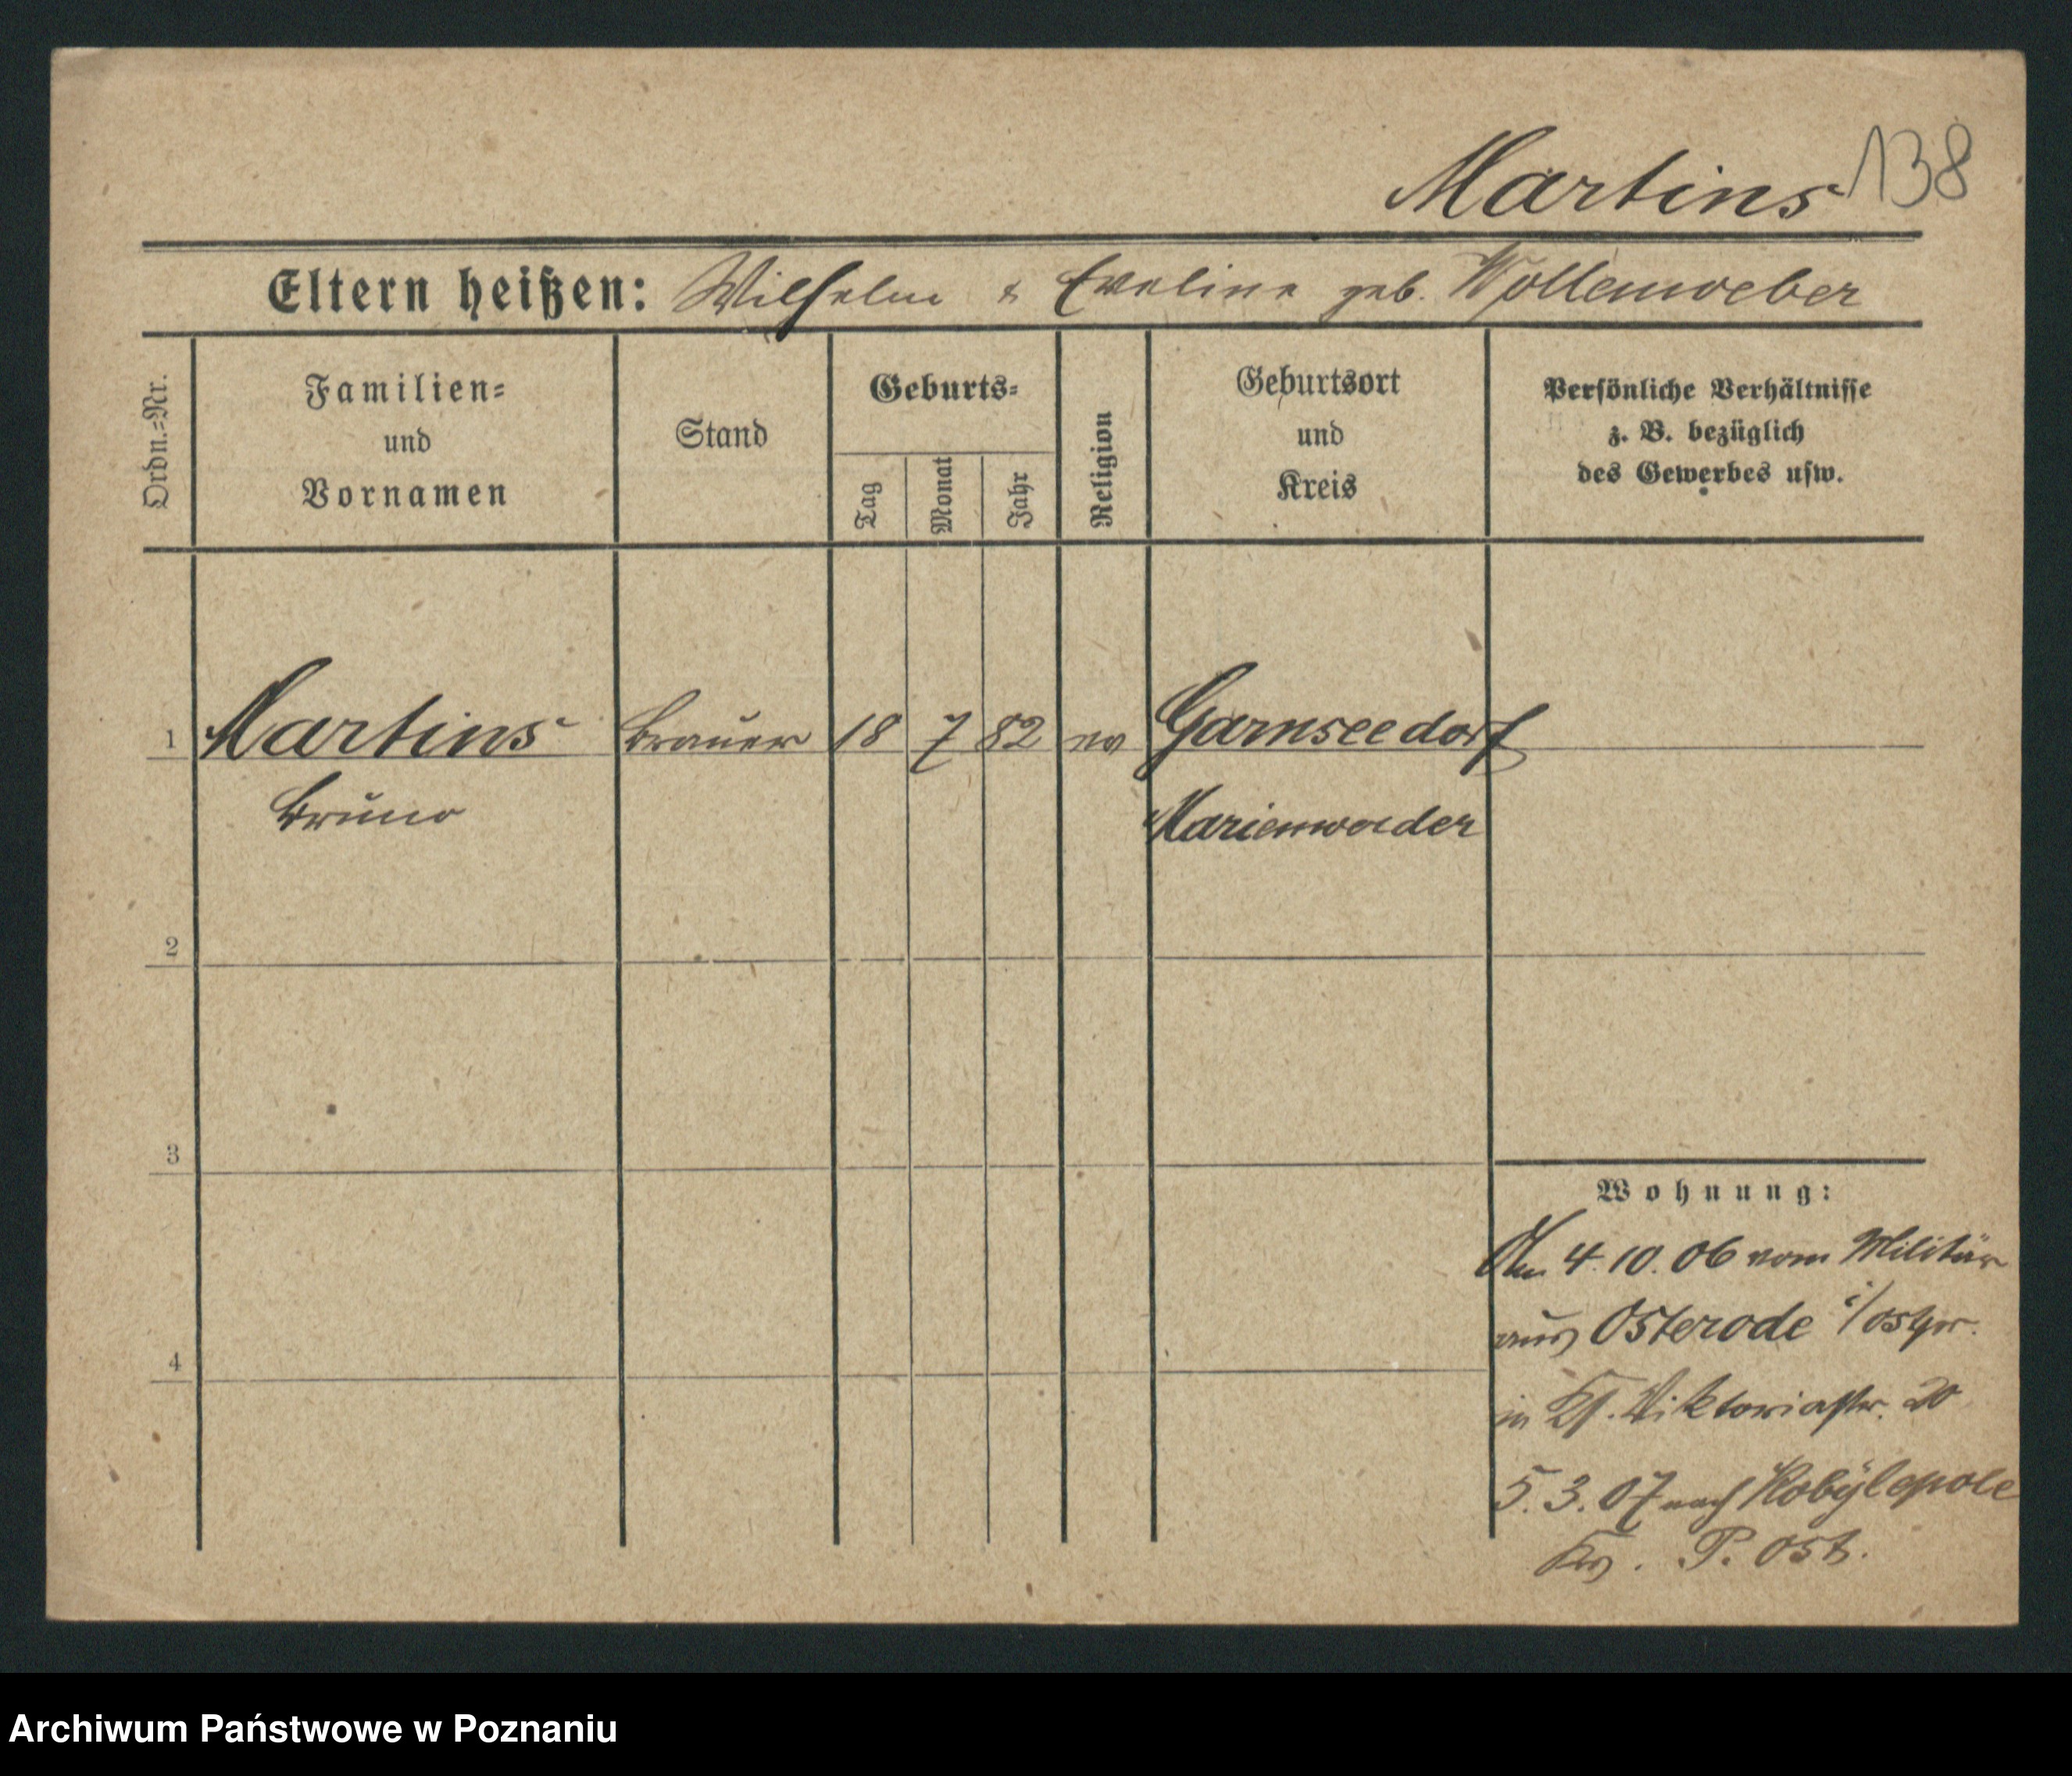 Martins 138
Eltern heißen: Wilhelm & Eveline geb. Wollenweber
Ordn.-Nr.
Familien-
und
Vornamen
Stand
Geburts-
Tag
Monat
Jahr
Religion
Geburtsort
und
Kreis
Persönliche Verhältnisse
z. B. bezüglich
des Gewerbes usw.
1 Martins Brauer 18 7 82 ev Garnseedorf
Bruno Marienwerder
2
3
Wohnung:
Am 4.10.06 vom Militär
aus Osterode i/Ostpr.
in Viktoriastr. 20
5.3.07 nach Kobylepole
4
Krs. P. Ost.
Archiwum Państwowe w Poznaniu